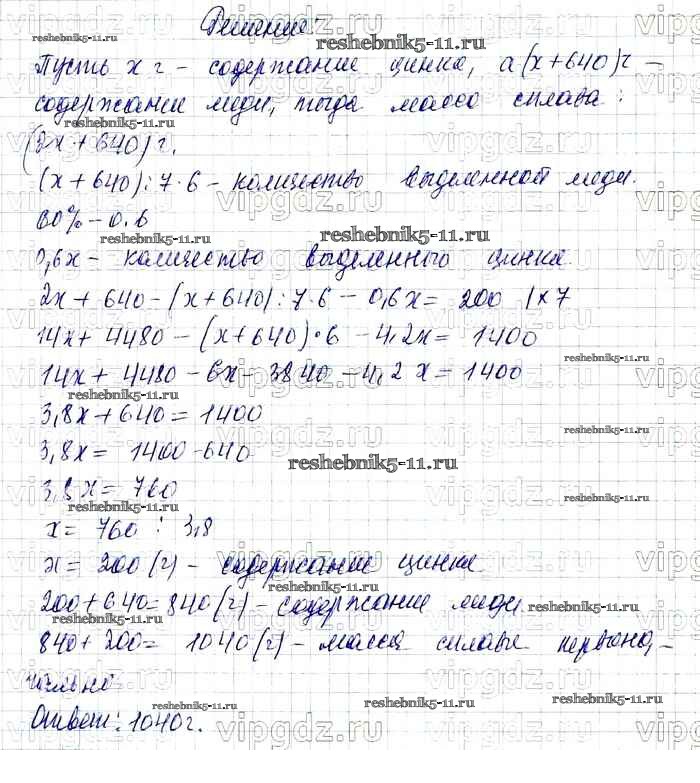 Решение
Пусть х г – содержание цинка, а (х+640) г –
содержание меди, тогда масса сплава:
(2х+640) г.
(х+640):7·6 – количество выделенной меди.
60% – 0.6
0,6х – количество выделенного цинка
2х + 640 – (х+640):7·6 – 0,6х = 200 |×7
14х + 4480 – (х+640)·6 – 4,2х = 1400
14х + 4480 – 6х – 3840 – 4,2х = 1400
3,8х + 640 = 1400
3,8х = 1400-640
3,8х = 760
х = 760 : 3,8
х = 200 (г) – содержание цинка
200 + 640 = 840 (г) – содержание меди
840 + 200 = 1040 (г) – масса сплава первона-
чально
Ответ: 1040 г.
reshebnik5-11.ru
vipgdz.ru